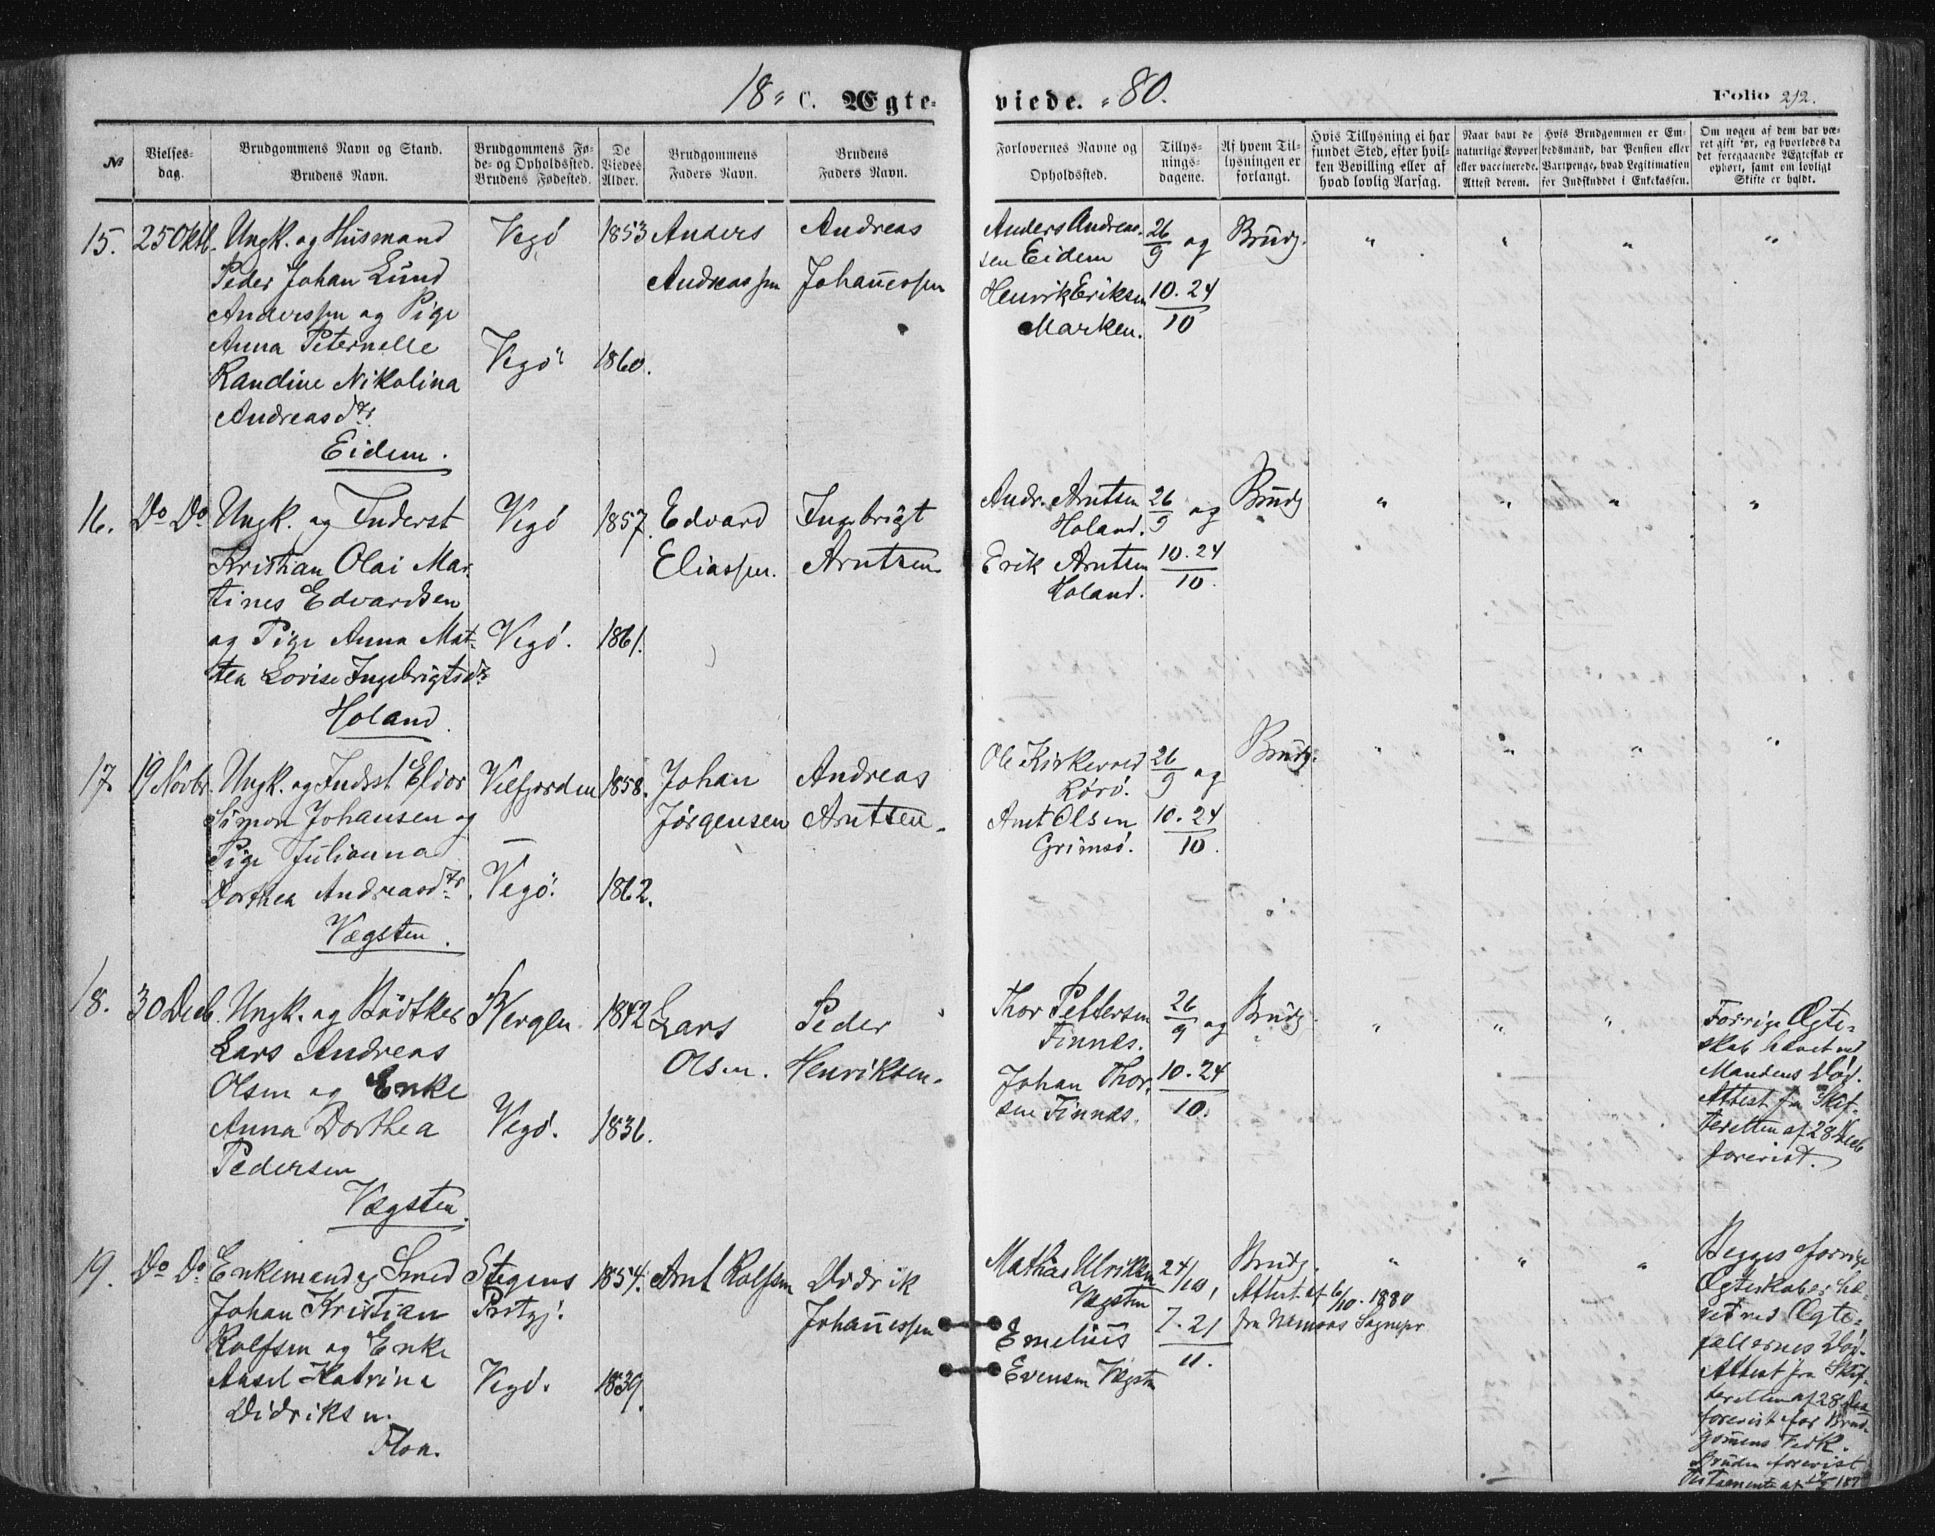 18 C. Ægteviede. 80.
Folio 212.
No
Vielsesdag.
Brudgommens Navn og Stand.
Brudens Navn.
BrudgommensFøde- og Opholdssted.
Brudens Fødested.
De Viedes Alder.
Brudgommens Faders Navn.
Brudens Faders Navn.
Forlovernes Navne og Opholdssted.
Tillysningsdagene.
Af hvem Tillysningen er forlangt.
Hvis Tillysning ei har fundet Sted, efter hvilken Bevilling eller af hvad lovlig Aarsag.
Naar havt de naturlige Kopper eller vaccinerede. Attest derom.
Hvis Brudgommen er Embedsmand, har Pension eller Vartpenge, hvad Legitimation for Indskuddet i Enkekassen.
Om nogen af dem har været gift før, og hvorledes da det foregaaende Ægteskab er ophørt, samt om lovligt Skifte er holdt.
15. 25 Oktb. Ungk. og Husmand
Peder Johan Lund
Anderssen og Pige
Anna Peternelle
Randine Nikolina
Andreasdtr.
Eidem.
Vegø
Vegø
1853
1860.
Anders
Andreassen
Andreas
Johannessen
Anders Andreas-
sen Eidem
Henrik Eriksen
Marken.
26/9 og
10. 24/10
Brudg.
" " " "
16. Do Do Ungk. og Inderst
Kristian Olai Mar-
tines Edvardsen
og Pige Anna Mat-
tea Lovise Ingebrigtsdtr
Holand.
Vegø
Vegø.
1857.
1861.
Edvard
Eliassen.
Ingebrigt
Arntsen.
Andr. Arntsen
Holand.
Erik Arntsen
Holand.
26/9 og
10. 24/10.
Brudg
" " " "
17. 19 Novbr. Ungk. og Indst Elior
Simon Johansen og
Pige Julianna
Dorthea Andreasdtr.
Vægsten.
Velfjorden
—
Vegø.
1858.
1862.
Johan
Jørgensen
Andreas
Arntsen.
Ole Kirkevold
Rørø.
Arnt Olsen
Grimsø.
26/9 og
10. 24/10.
Brudg.
" " " "
18. 30 Decb. Ungk. og Bødtker
Lars Andreas
Olsen og Enke
Anna Dorthea
Pedersen
Vægsten.
Bergen
Vegø.
1842
1836.
Lars
Olsen.
Peder
Henriksen.
Thor Pettersen
Finnes.
Johan Thor-
sen Finnes.
26/9 og
10. 24/10.
Brudg
" " "
Forrige Ægte-
skab hævet ved
Mandens Død.
Attest fra Skif-
teretten af 28 Decb
forevist.
19. Do Do Enkemand og Smed
Johan Kristian
Rolfsen og Enke
Ansel Katrina
Didriksen.
Floa.
Stegens
Prstgj.
Vegø.
1854.
1839.
Arnt Rolfsen
Didrik
Johannessen
Mathias Ulriksen
Vægsten
Emelius
Evensen Vægsten
24/10,
7. 21/11.
Brudg.
Attest af 6/10. 1880
fra Nemnæs Sognepr
" " "
Begges forrige
Ægteskaber hæ-
vet ved Ægte-
fællernes Død.
Attest fra Skif-
teretten af 28 Dec
forevist for Brud-
gomens Vedk.
Bruden forevist
Testamente af